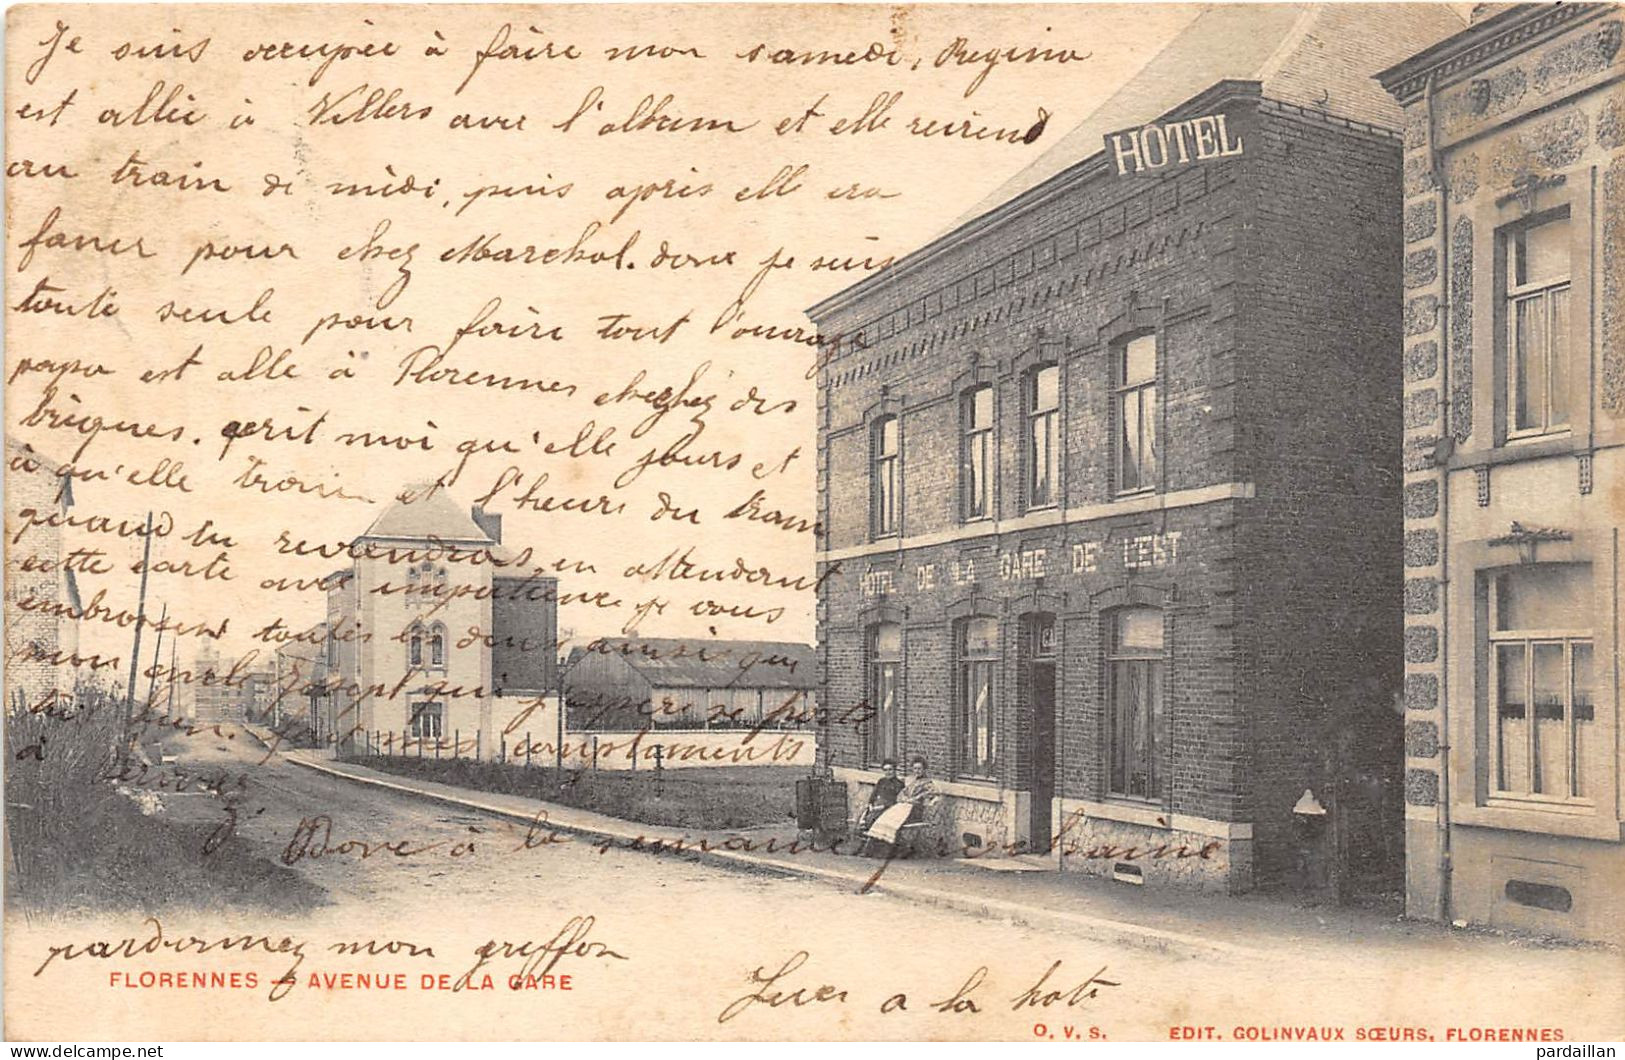 Je suis occupée à faire mon samedi, Regina
est allée à Villers avec l'album et elle reviend
au train de midi, puis après elle ira
faner pour chez Marchal. donc je suis
toute seule pour faire tout l'ouvrage
papa est allé à Florennes cherchez des
briques. écrit moi qu'elle jours et
à qu'elle train et l'heure du tram
quand tu reviendras, en attendant
cette carte avec impatience je vous
embrassent toutes les deux ainsi que
mon oncle Joseph qui j'espère se porte
très bien. fait mes compliments
à
Donc à la semaine prochaine
pardonnez mon griffon
a la hate
HÔTEL
HÔTEL DE LA GARE DE L'EST
FLORENNES — AVENUE DE LA GARE
O. V. S. EDIT. GOLINVAUX SŒURS, FLORENNES
pardaillan